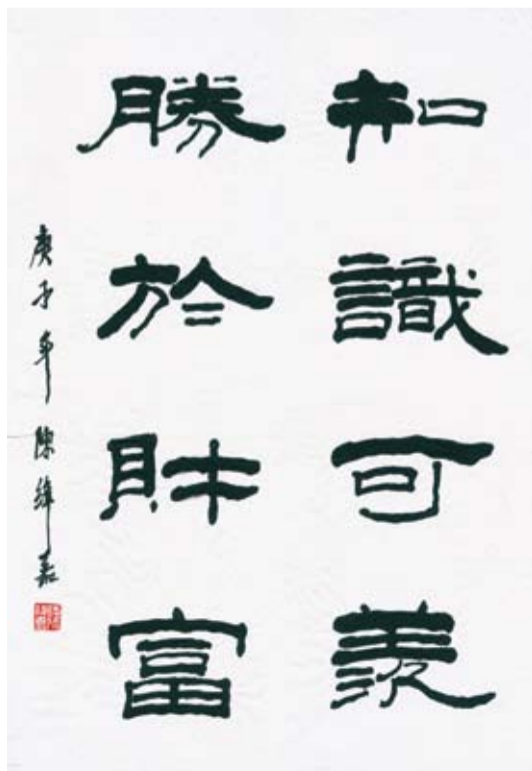 知識可羨
勝於財富
庚子年 陳緯嘉